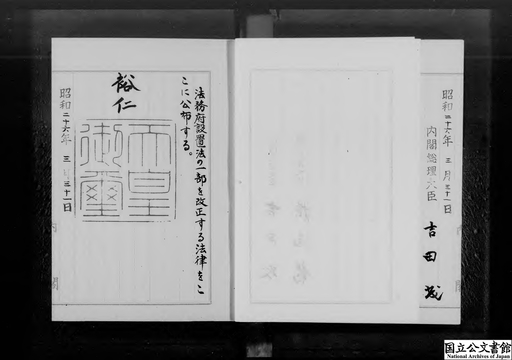 法務府設置法の一部を改正する法律をこ
こに公布する。
裕仁
天皇
御璽
昭和二十六年三月三十一日
内閣
昭和二十六年三月三十一日
内閣総理大臣
吉田茂
国立公文書館
National Archives of Japan